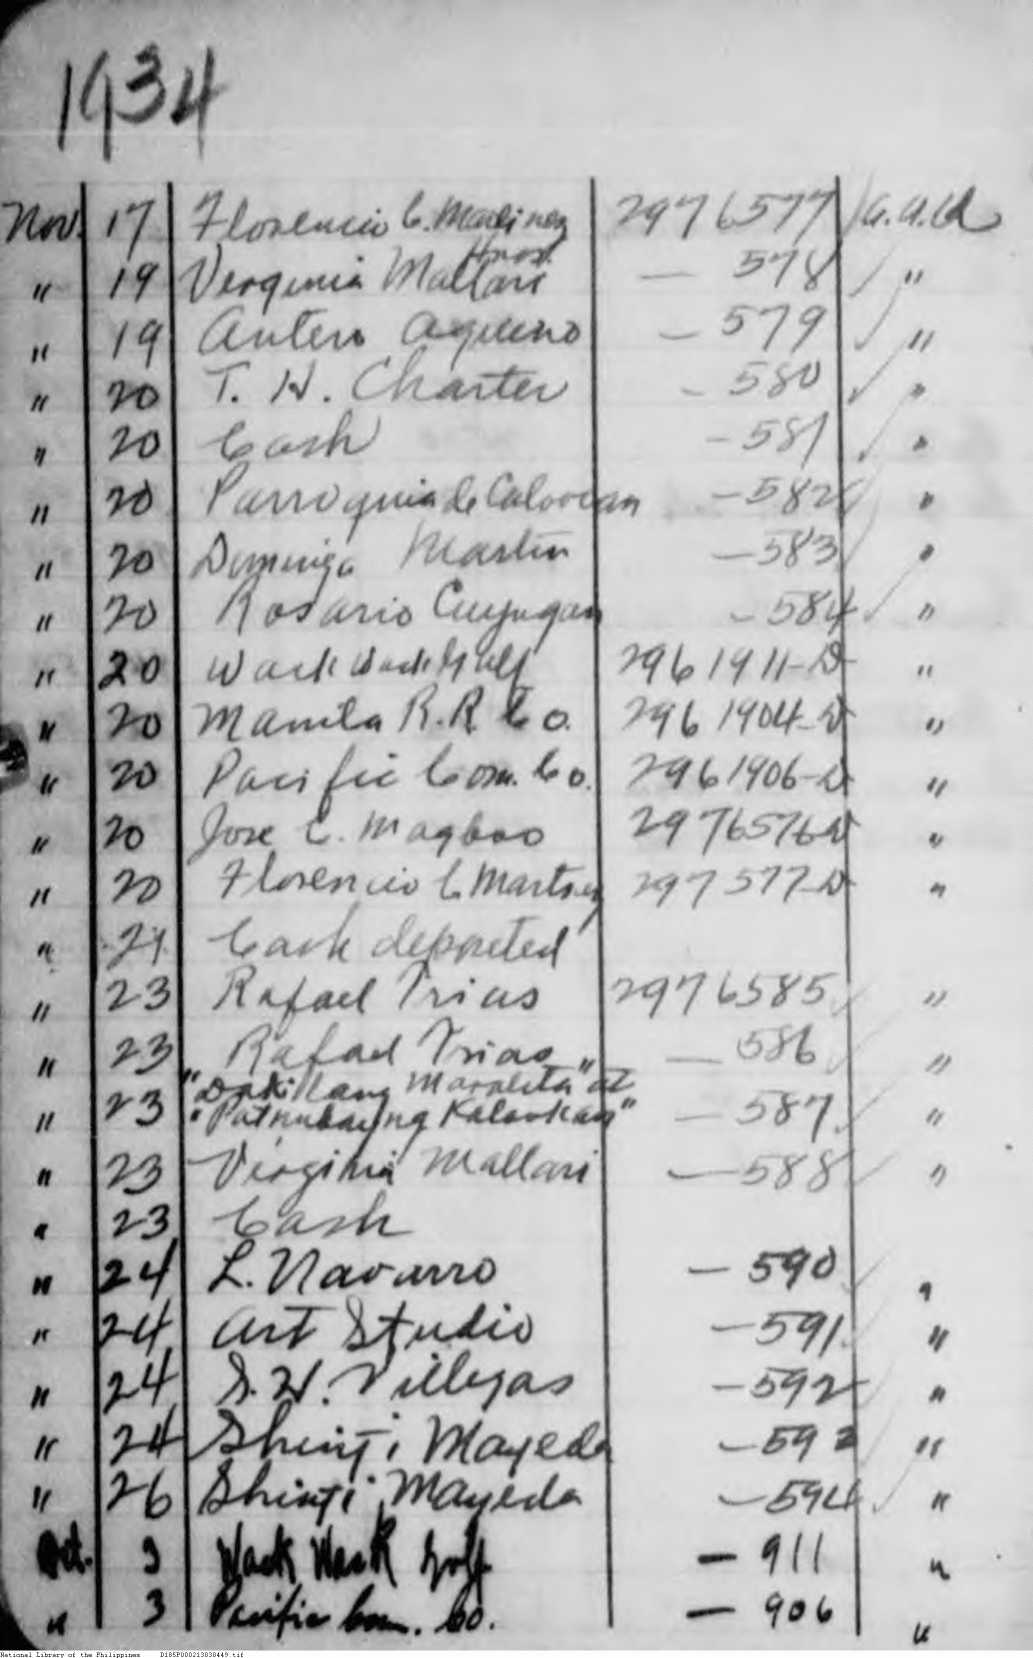 1934
Nov. 17 Florencio C. Martinez 2976577 / a.a.d
Hnos.
" 19 Verginia Mallari — 578 ✓ "
" 19 Antero Aquino — 579 ✓ "
" 20 T. H. Charter — 580 ✓ "
" 20 Cash — 581 ✓ "
" 20 Parroquia de Caloocan — 582 ✓ "
" 20 Domingo Martin — 583 ✓ "
" 20 Rosario Cuyugan — 584 ✓ "
" 20 Wack Wack Golf 2961911-D "
" 20 Manila R.R. Co. 2961904-D "
" 20 Pacific Com. Co. 2961906-D "
" 20 Jose C. Magboo 2976576D "
" 20 Florencio C Martinez 297577-D "
" 21 Cash deposited
" 23 Rafael Trias 2976585 ✓ "
" 23 Rafael Trias — 586 ✓ "
" 23 "Dakilang Maralita" at — 587 ✓ "
"Patnubay ng Kalookan"
" 23 Virginia Mallari — 588 ✓ "
" 23 Cash
" 24 L. Navarro — 590 ✓ "
" 24 Art Studio — 591 ✓ "
" 24 S. H. Villegas — 592 ✓ "
" 24 Shinji Mayeda — 593 ✓ "
" 26 Shinji Mayeda — 594 ✓ "
Oct. 3 Wack Wack Golf — 911 "
" 3 Pacific Com. Co. — 906 "
National Library of the Philippines D185P000213838449.tif